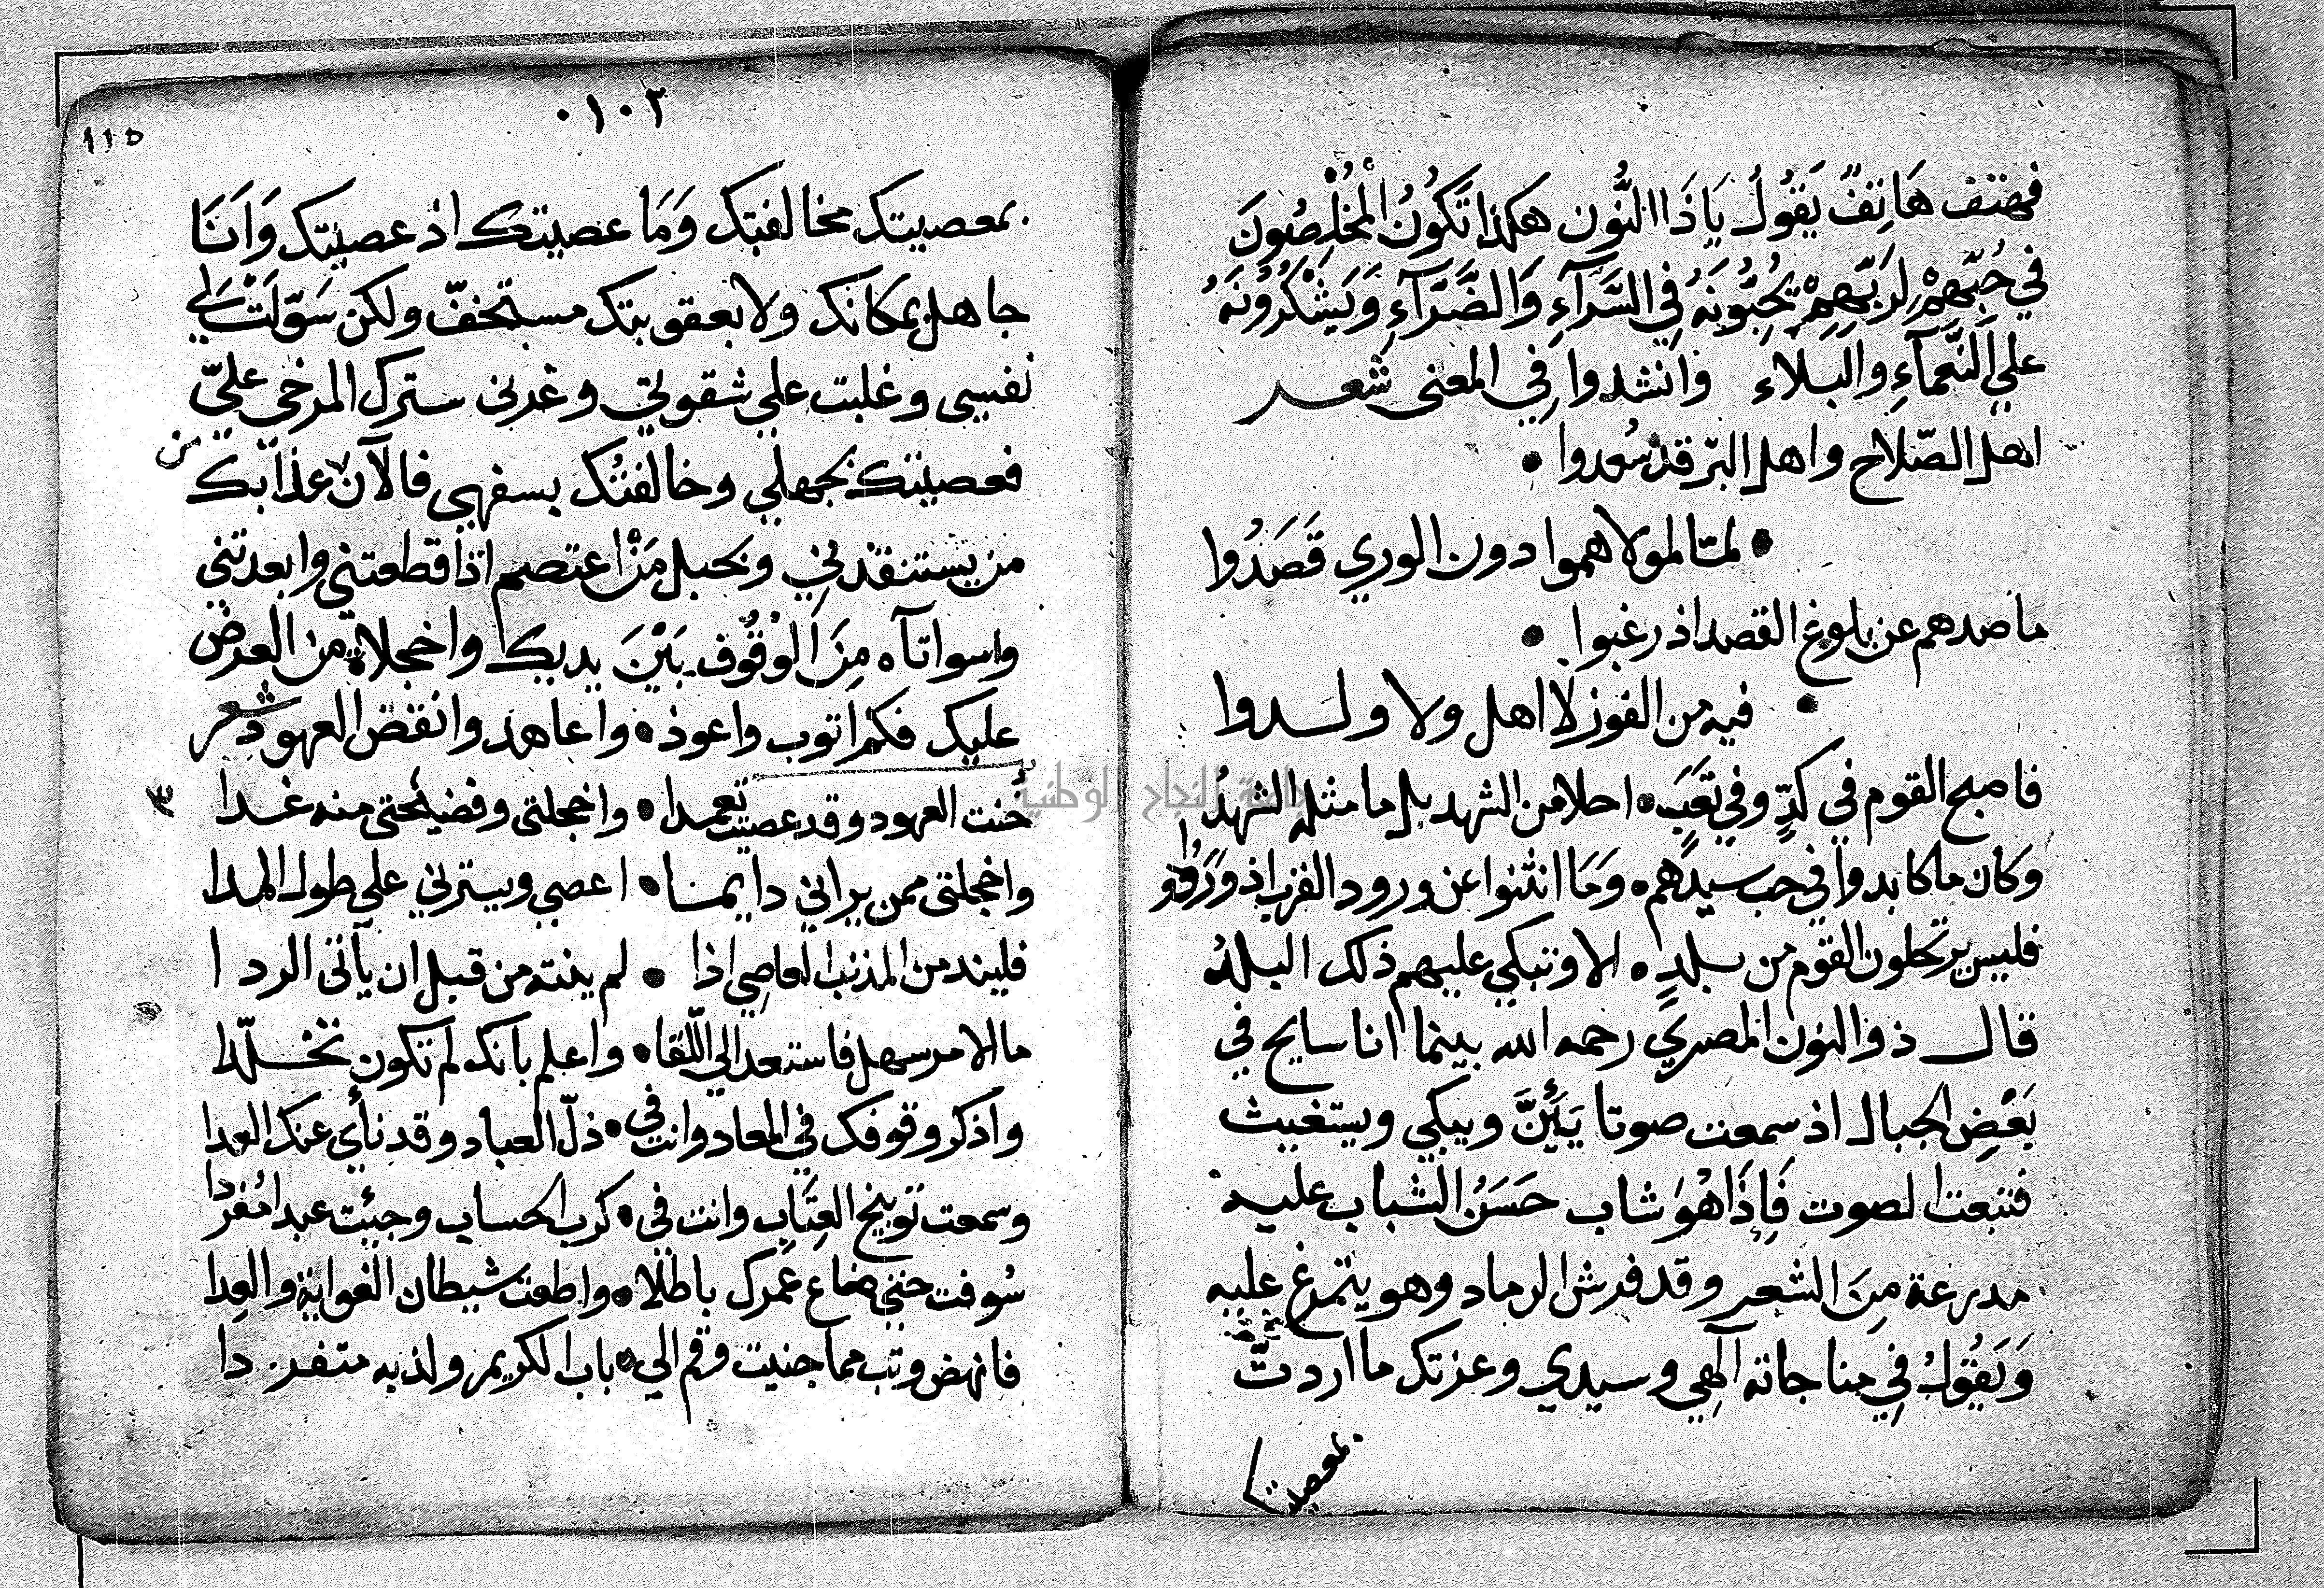 فهتف هَاتِفٌ يَقُولُ يَاذَا النُّون هكذا تَكُونُ الْمُخْلِصُونَ
في حُبِّهِمْ لِرَبِّهِمْ يُحِبُّونَهُ فِي السَّرَآءِ وَالضَّرَآءِ وَيَشْكُرُونَهُ
علي النَّعمَآءِ والبَلاء وانشدوا فِي المعنى شعر
اهل الصّلاح واهل البرّ قد سُعدوا •
• لمّا لمولاهموا دون الوري قَصَدُوا
ما صدهم عن بلوغ القصد اذ رغبوا •
• فيه من الفوز لا اهل ولا ولدوا
فاصبح القوم في كدٍّ وفي تَعَبٍ • احلا من الشهد بل ما مثله الشهدُ
وكان ما كابدوا في حب سيدهم • وَمَا انثنوا عن ورود القرب اذ وَرَدُوا
فليس يرتحلون القوم من بلدٍ • الا وتبكي عليهم ذلك البلدُ
قال ذو النون المصري رحمه الله بينما انا سايح في
بَعْضِ الجبال اذ سمعت صوتا يَئِنَّ ويبكي ويستغيث
فتبعت الصوت فَإِذَا هُوَ شاب حَسَنُ الشباب عليه
مدرعة مِنَ الشعر وقد فرش الرماد وهو يتمرغ عليه
وَيَقُولُ فِي مناجاته آلهي وسيدي وعزتك ما اردتّ
بمعصيتك
٠١٠٢
١١٥
بمعصيتك مخالفتك وَمَا عصيتك اذ عصيتك وَاَنَا
جاهل بمكانك ولا بعقوبتك مستخفّ ولكن سَوّلَتْ لي
نفسي وغلبت علي شقوتي وغرني سترك المرخي عليّ
فعصيتك بجهلي وخالفتُك بسفهي فالآن من عذابك
من يستنقذني وبحبل مَنْ اعتصم اذا قطعتني وابعدتني
واسواتآه مِنَ الوُقُوف بَيْنَ يديك واخجلاه من العرض
عليك فكم اتوب واعوذ • واعاهد وانقض العهود شعر
خُنت العهود وقد عصيت تعمدا • واخجلتي وفضيحتي منه غدا
واخجلتي ممن يراني دايما • اعصي ويسترني علي طول المدا
فليندمن المذنب العاصي اذا • لم ينته من قبل ان ياتي الردا
ما الامر سهل فاستعد الي اللّقا • واعلم بانك لم تكون تخلّدا
واذكر وقوفك في المعاد وانت في • ذلّ العباد وقد نأي عنك العدا
وسمعت توبيخ العِتَاب وانت في • كرب الحساب وجئت عبدا مُفردا
سُوفت حتي ضاع عُمرك باطلا • واطعت شيطان الغواية والعِدا
فانهض وتب مما جنيت وقم الي • باب الكريم ولذ به متفردا